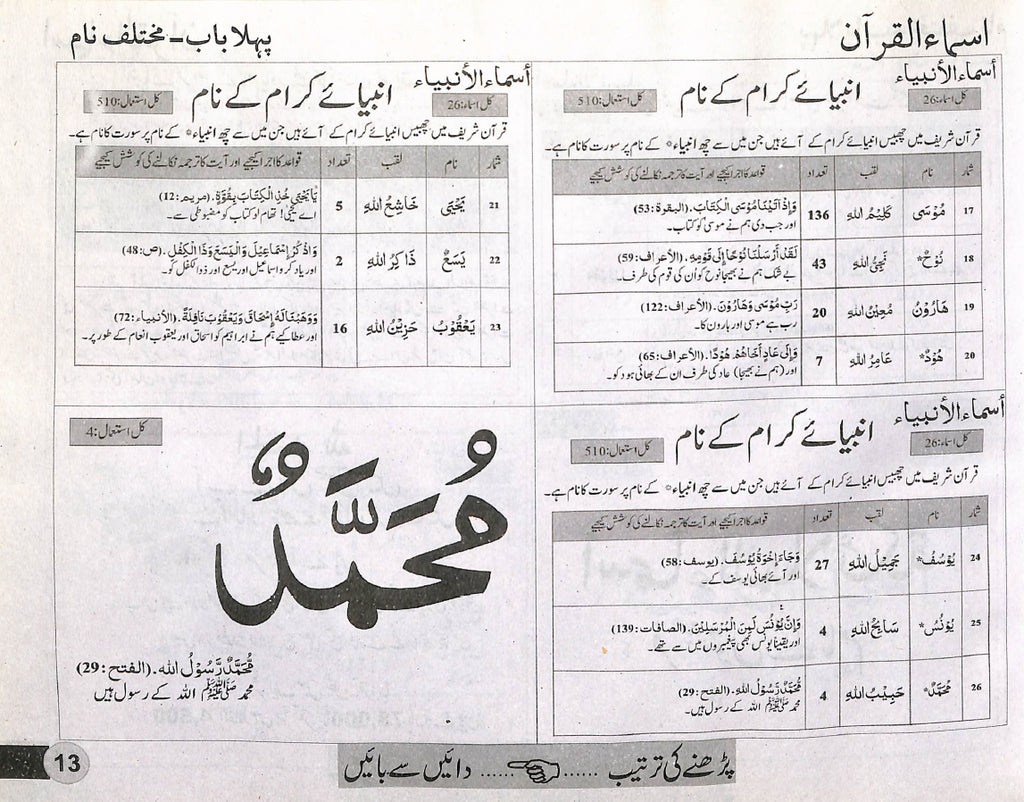 اسماء القرآن
پہلا باب ۔ مختلف نام
أسماء الأنبیاء
انبیائے کرام کے نام
کل اسماء: 26
کل استعمال: 510
قرآن شریف میں چھبیس انبیائے کرام کے آئے ہیں جن میں سے چھ انبیاء* کے نام پر سورت کا نام ہے۔
شمار نام لقب تعداد قواعد کا اجرا کیجیے اور آیت کا ترجمہ نکالنے کی کوشش کیجیے
17 مُوْسٰى كَلِيْمُ اللهِ 136 وَإِذْ آتَيْنَا مُوْسَى الْكِتَابَ. (البقرة: 53)
اور جب دی ہم نے موسیٰ کو کتاب۔
18 نُوْحٌ* نَجِيُّ اللهِ 43 لَقَدْ أَرْسَلْنَا نُوْحًا إِلٰى قَوْمِهٖ. (الأعراف: 59)
بے شک ہم نے بھیجا نوح کو اُن کی قوم کی طرف۔
19 هَارُوْنُ مُعِيْنُ اللهِ 20 رَبِّ مُوْسٰى وَهَارُوْنَ. (الأعراف: 122)
رب ہے موسیٰ اور ہارون کا۔
20 هُوْدٌ* عَامِرُ اللهِ 7 وَإِلٰى عَادٍ أَخَاهُمْ هُوْدًا. (الأعراف: 65)
اور (ہم نے بھیجا) عاد کی طرف ان کے بھائی ہود کو۔
أسماء الأنبیاء
انبیائے کرام کے نام
کل اسماء: 26
کل استعمال: 510
قرآن شریف میں چھبیس انبیائے کرام کے آئے ہیں جن میں سے چھ انبیاء* کے نام پر سورت کا نام ہے۔
شمار نام لقب تعداد قواعد کا اجرا کیجیے اور آیت کا ترجمہ نکالنے کی کوشش کیجیے
21 يَحْيٰى خَاشِعُ اللهِ 5 يٰا يَحْيٰى خُذِ الْكِتَابَ بِقُوَّةٍ. (مريم: 12)
اے یحییٰ! تھام لو کتاب کو مضبوطی سے۔
22 يَسَعُ ذَاكِرُ اللهِ 2 وَاذْكُرْ إِسْمَاعِيْلَ وَالْيَسَعَ وَذَا الْكِفْلِ. (ص: 48)
اور یاد کرو اسماعیل اور یسع اور ذوالکفل کو۔
23 يَعْقُوْبُ حَزِيْنُ اللهِ 16 وَوَهَبْنَا لَهٗ إِسْحَاقَ وَيَعْقُوْبَ نَافِلَةً. (الأنبياء: 72)
اور عطا کیے ہم نے ابراہیم کو اسحاق اور یعقوب انعام کے طور پر۔
أسماء الأنبیاء
انبیائے کرام کے نام
کل اسماء: 26
کل استعمال: 510
قرآن شریف میں چھبیس انبیائے کرام کے آئے ہیں جن میں سے چھ انبیاء* کے نام پر سورت کا نام ہے۔
شمار نام لقب تعداد قواعد کا اجرا کیجیے اور آیت کا ترجمہ نکالنے کی کوشش کیجیے
24 يُوْسُفُ* جَمِيْلُ اللهِ 27 وَجَاءَ إِخْوَةُ يُوْسُفَ. (يوسف: 58)
اور آئے بھائی یوسف کے۔
25 يُوْنُسُ* سَائِحُ اللهِ 4 وَإِنَّ يُوْنُسَ لَمِنَ الْمُرْسَلِيْنَ. (الصافات: 139)
اور یقیناً یونس بھی پیغمبروں میں سے تھے۔
26 مُحَمَّدٌ* حَبِيْبُ اللهِ 4 مُحَمَّدٌ رَّسُوْلُ اللهِ. (الفتح: 29)
محمد ﷺ اللہ کے رسول ہیں۔
کل استعمال: 4
مُحَمَّدٌ
مُحَمَّدٌ رَّسُوْلُ الله. (الفتح: 29)
محمد ﷺ اللہ کے رسول ہیں
پڑھنے کی ترتیب ...... ...... دائیں سے بائیں
13